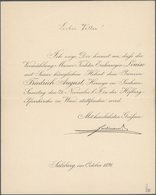 Lieber Vetter!
Ich zeige Dir hiermit an, dass die
Vermählung Meiner Tochter Erzherzogin Louise
mit Seiner königlichen Hoheit dem Prinzen
Friedrich August, Herzoge zu Sachsen,
Samstag den 21. November l. J. in der Hofburg-
Pfarrkirche in Wien stattfinden wird.
Mit herzlichsten Grüßen
Salzburg, im October 1891.